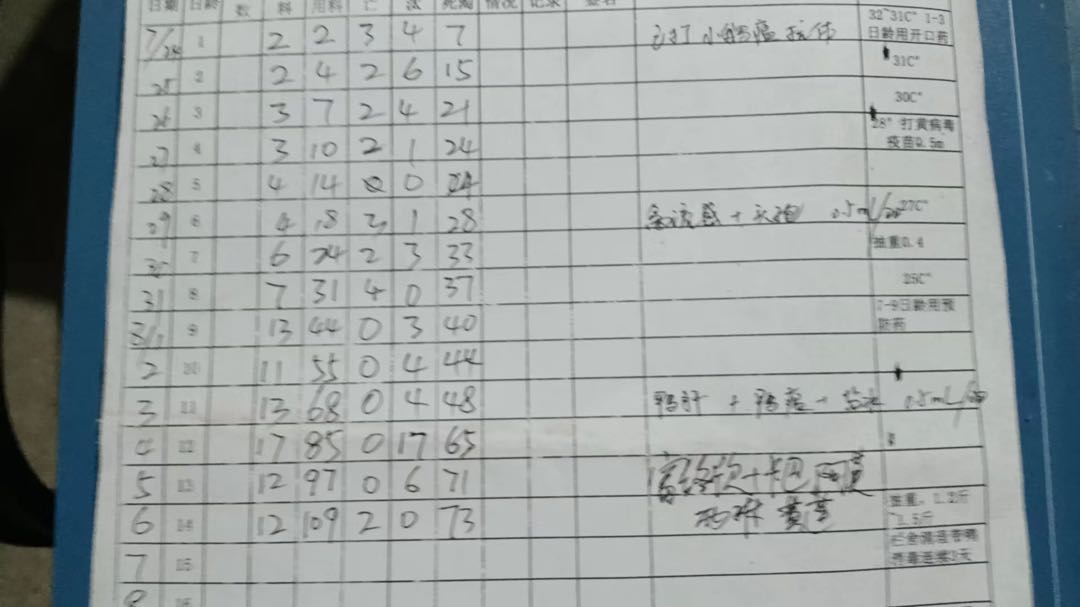 日期 日龄 数 料 用料 亡 汰 死淘 情况 记录 签名
7/24 1 2 2 3 4 7 小鸭瘟抗体 32~31C° 1-3
日龄用开口药
25 2 2 4 2 6 15 31C°
26 3 3 7 2 4 21 30C°
27 4 3 10 2 1 24 28° 打黄病毒
疫苗0.5m
28 5 4 14 0 0 24
29 6 4 18 3 1 28 禽流感+ 0.5mL/ 27C°
7 6 24 2 3 33 抽重0.4
31 8 7 31 4 0 37 25C°
7-9日龄用预
防药
8/1 9 13 44 0 3 40
2 10 11 55 0 4 44
3 11 13 68 0 4 48 鸭肝 + 鸭瘟 + 0.5mL/
4 12 17 85 0 17 65
5 13 12 97 0 6 71 +卡巴
6 14 12 109 2 0 73 抽重，1.2斤
~1.5斤
7 15
8 16